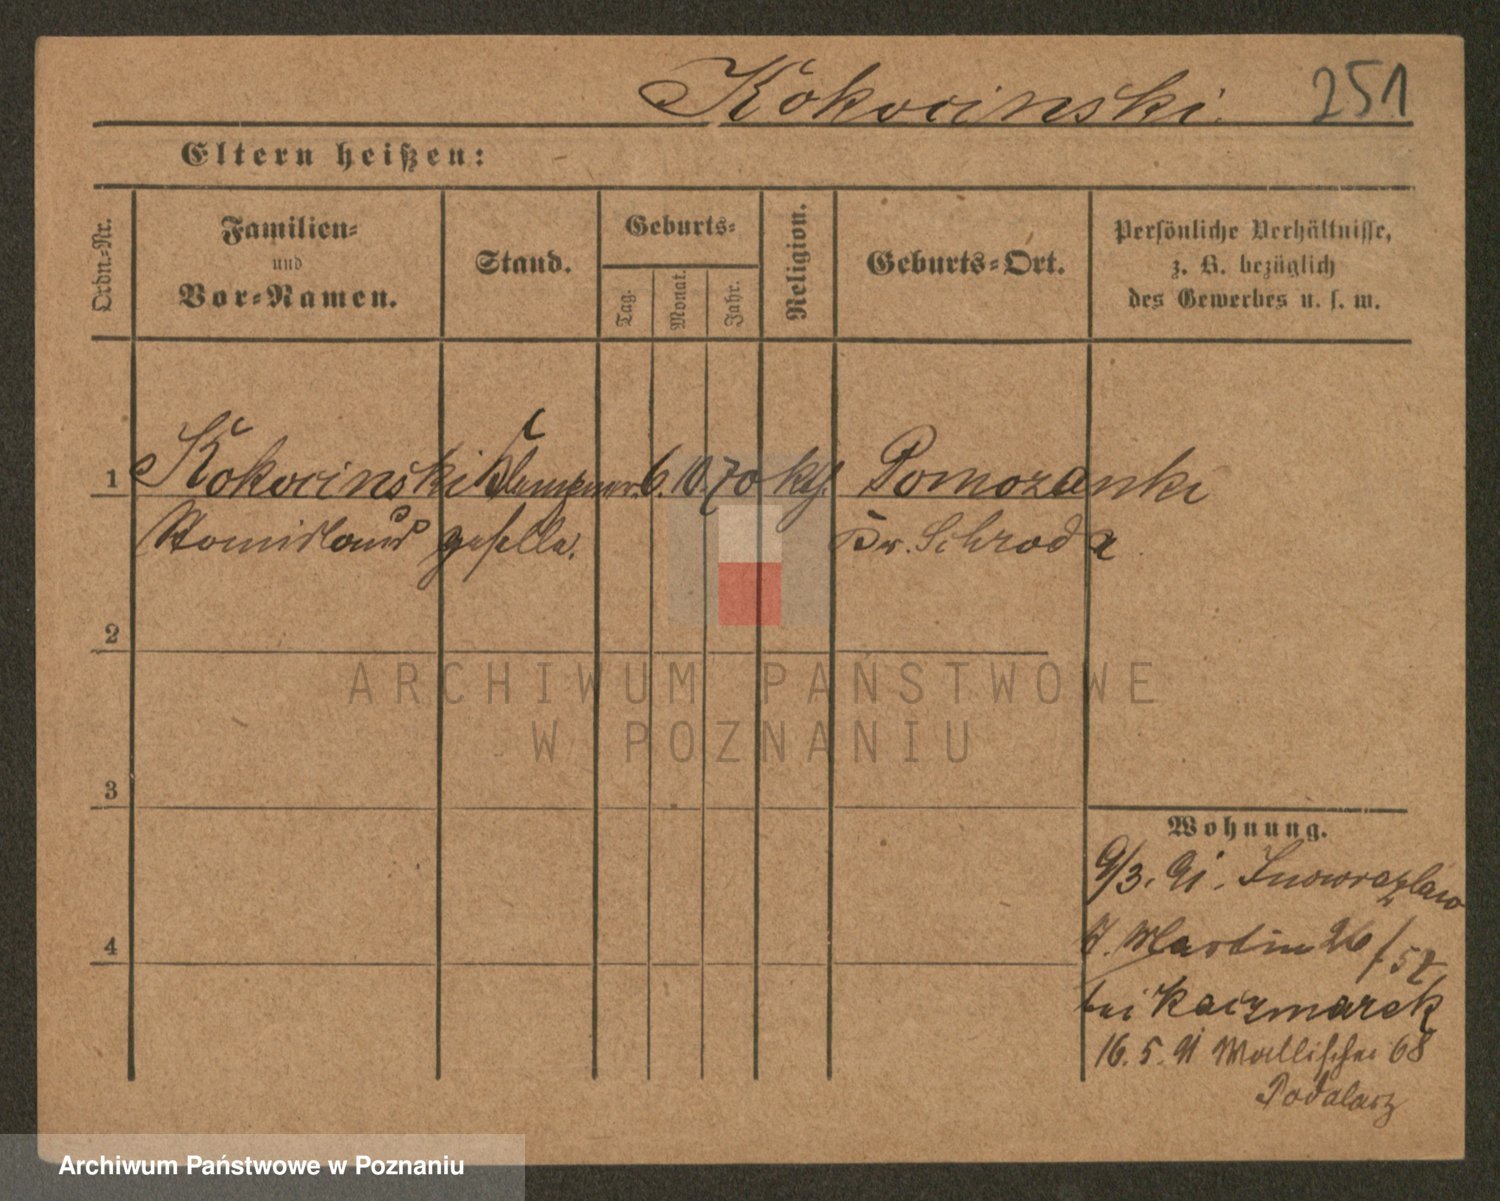 Kokocinski.
251
Eltern heißen:
Ordn.-Nr.
Familien-
und
Vor-Namen.
Stand.
Geburts-
Tag.
Monat.
Jahr.
Religion.
Geburts-Ort.
Persönliche Verhältnisse,
z. B. bezüglich
des Gewerbes u. s. w.
1 Kokocinski Klempner 6. 10. 70 kth. Pomozanki
Stanislaus geselle. Kr. Schroda.
2
3
4
Wohnung.
9/3. 91. Inowrazlaw
St. Martin 26
bei Kaczmarek
16. 5. 91 Wallischei 68
Podalarz
ARCHIWUM PAŃSTWOWE
W POZNANIU
Archiwum Państwowe w Poznaniu